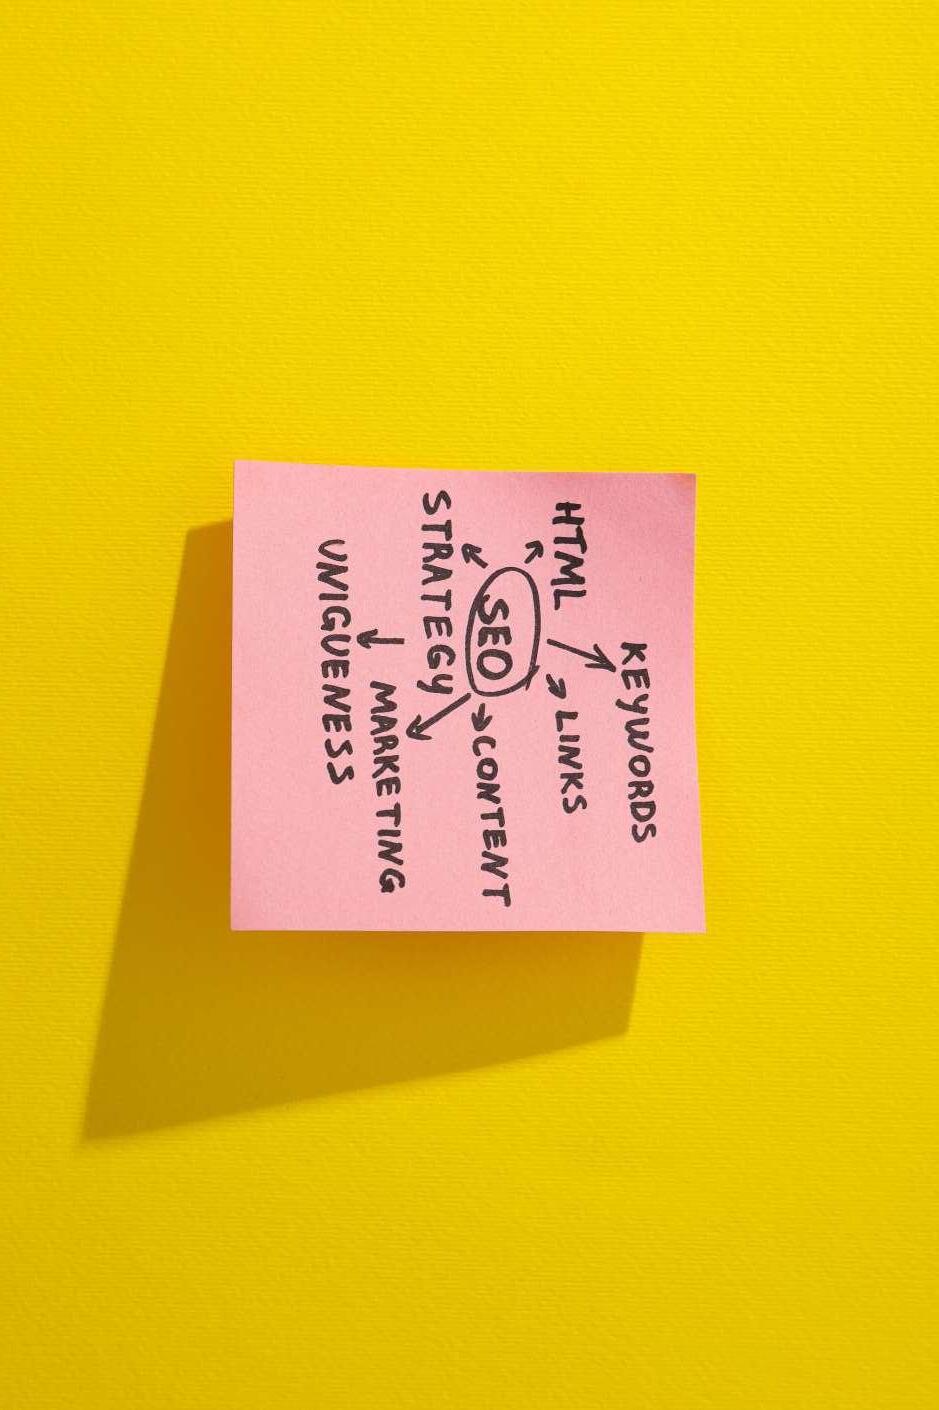 KEYWORDS
HTML
LINKS
SEO
CONTENT
STRATEGY
MARKETING
UNIGUENESS